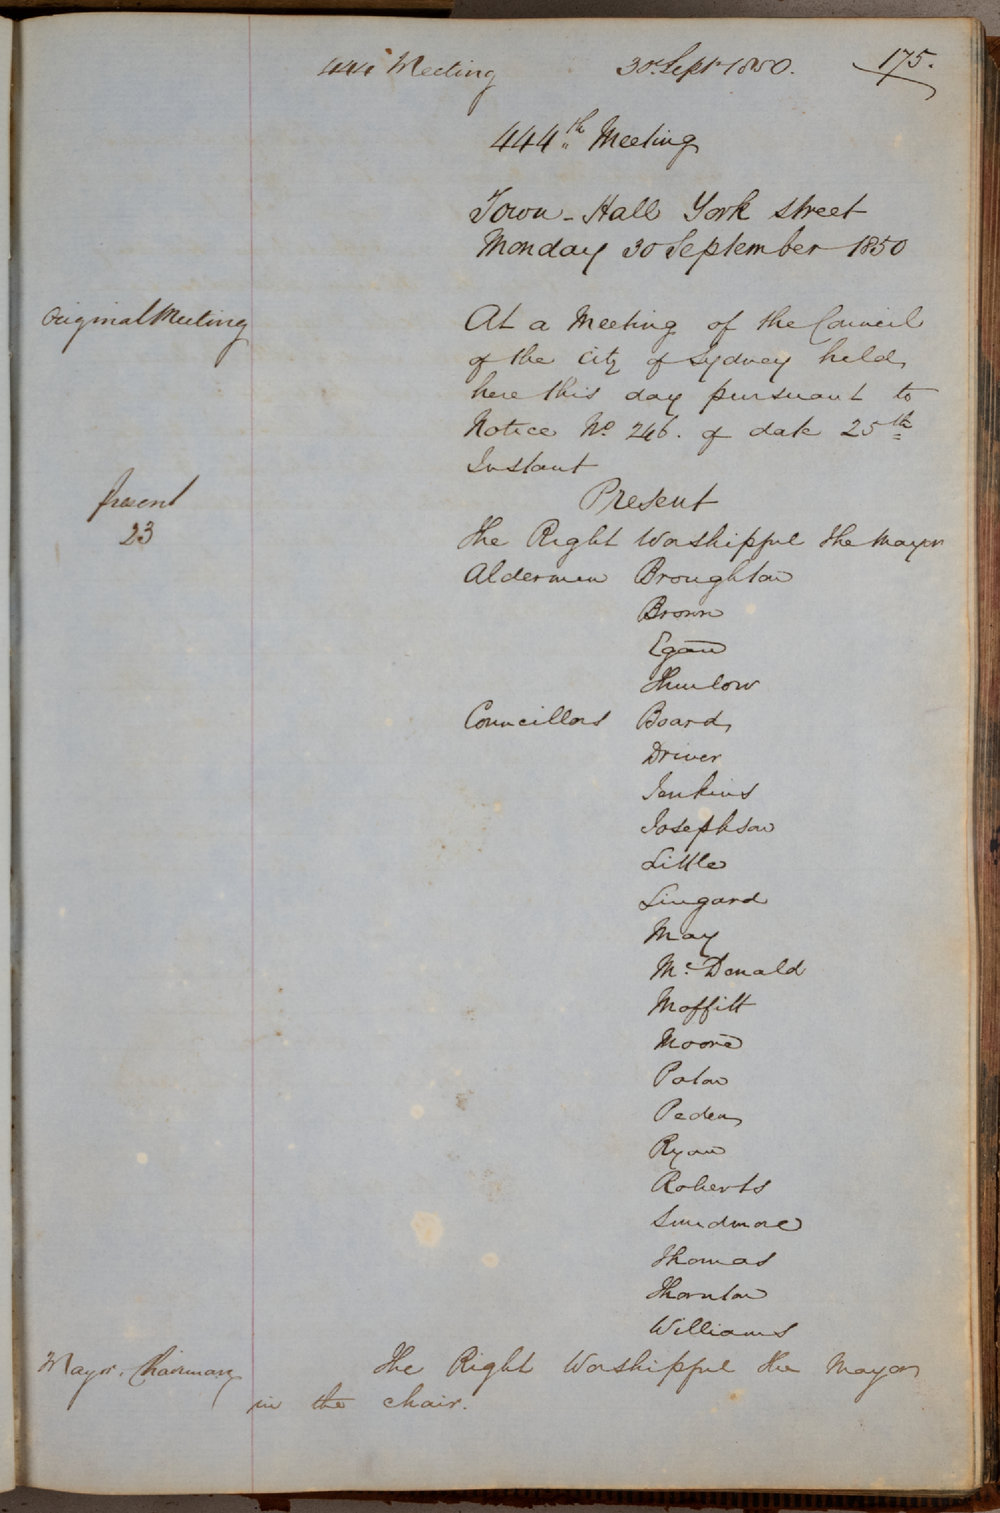 444 Meeting 30 Sept 1850. 175.
444th Meeting
Town-Hall York street
Monday 30 September 1850
Original Meeting
At a Meeting of the Council
of the City of Sydney held
here this day pursuant to
Notice No 246. of date 25th
Instant
Present
Present
23
The Right Worshipful the Mayor
Aldermen Broughton
Brown
Egan
Thurlow
Councillors Board
Driver
Jenkins
Josephson
Little
Lingard
May
McDonald
Moffitt
Moore
Paton
Peden
Ryan
Roberts
Smidmore
Thomas
Thornton
Williams
Mayor, Chairman
The Right Worshipful the Mayor
in the chair.